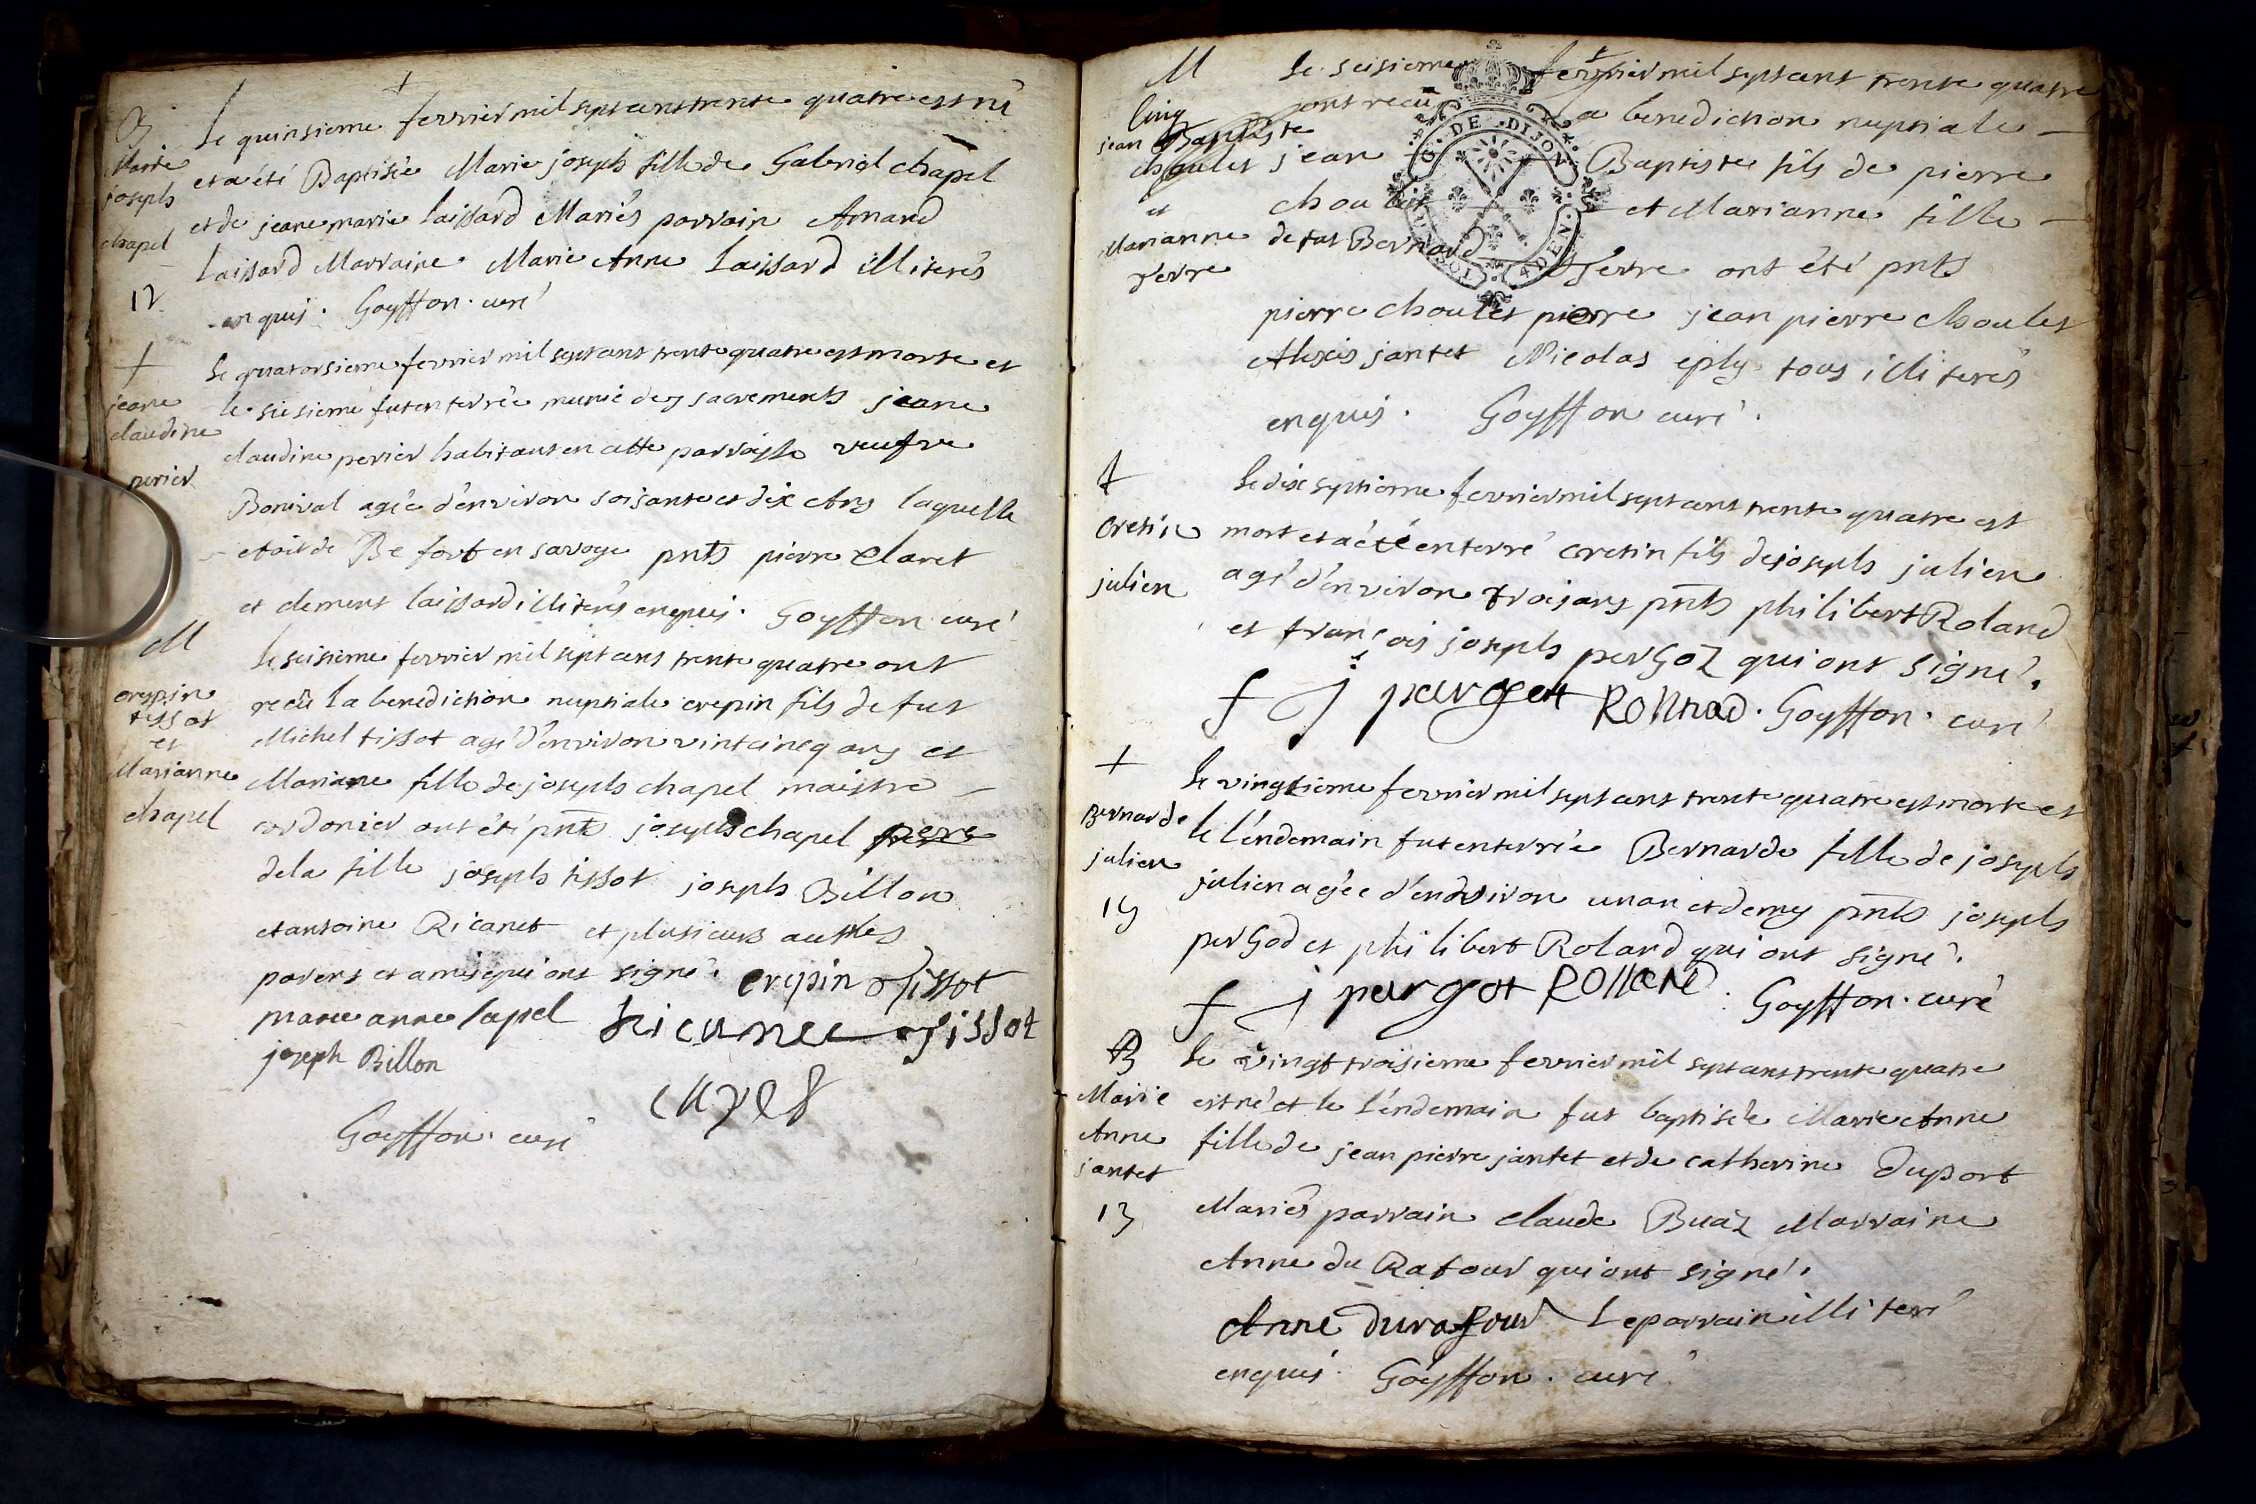 B
Marie
joseph
chapel
12
Le quinsieme fevrier mil sept cens trente quatre est né
et a été Baptisée Marie joseph fille de Gabriel chapel
et de jeane marie laissard Mariés parrain Amand
laissard Marraine Marie Anne Laissard illiterés
enquis. Goyffon. curé
+
jeane
claudine
perier
Le quatorsieme fevrier mil sept cens trente quatre est morte et
le sisieme fut enterrée munie des sacrements jeane
claudine perier habitant en cette parroisse veufve
Bonival agée d'environ soisante et dix Ans laquelle
etoit de Be fort en savoye pnts pierre Claret
et clement laissard illiterés enquis. Goyffon curé
M
crepin
tissot
et
Marianne
chapel
le seisieme fevrier mil sept cens trente quatre ont
recû la benediction nuptiale crepin fils de fut
Michel tissot agé d'environ vint cincq ans et
Mariane fille de joseph chapel maistre
cordonier ont été pnts joseph chapel pere
de la fille joseph tissot joseph Billon
et antoine Ricanet et plusieurs autres
parens et amis qui ont signé. crepin tissot
marie anne sapel Ricanet tissot
joseph Billon
Goyffon. curé
M
jean Baptiste
choulet
et
Marianne
Le seisieme fevrier mil sept cens trente quatre
ont recû la benediction nuptiale
jean Baptiste fils de pierre
choulet et Marianne fille
de fut Bernard ont été pnts
G. DE DIJON
pierre choulet pierre jean pierre choulet
Alexis jantet Nicolas eply tous illiterés
enquis. Goyffon curé.
+
cretin
julien
Le dix septieme fevrier mil sept cens trente quatre est
mort et a été enterré cretin fils de joseph julien
agé d'environ trois ans pnts philibert Roland
et françois joseph pergoz qui ont signé.
f j pargot Goyffon. curé
+
Bernarde
julien
19
Le vingtieme fevrier mil sept cens trente quatre est morte et
le l'endemain fut enterrée Bernarde fille de joseph
julien agée d'environ un an et demy pnts joseph
pergod et philibert Roland qui ont signé.
f j pargot Rolland. Goyffon. curé
B
Marie
Anne
jantet
13
Le vingt troisieme fevrier mil sept cens trente quatre
est né et le l'endemain fut baptisée Marie Anne
fille de jean pierre jantet et de catherine Duport
Mariés parrain claude Buaz Marraine
Anne du Rafour qui ont signé.
Anne Durafour Le parrain illiteré
enquis. Goyffon. curé